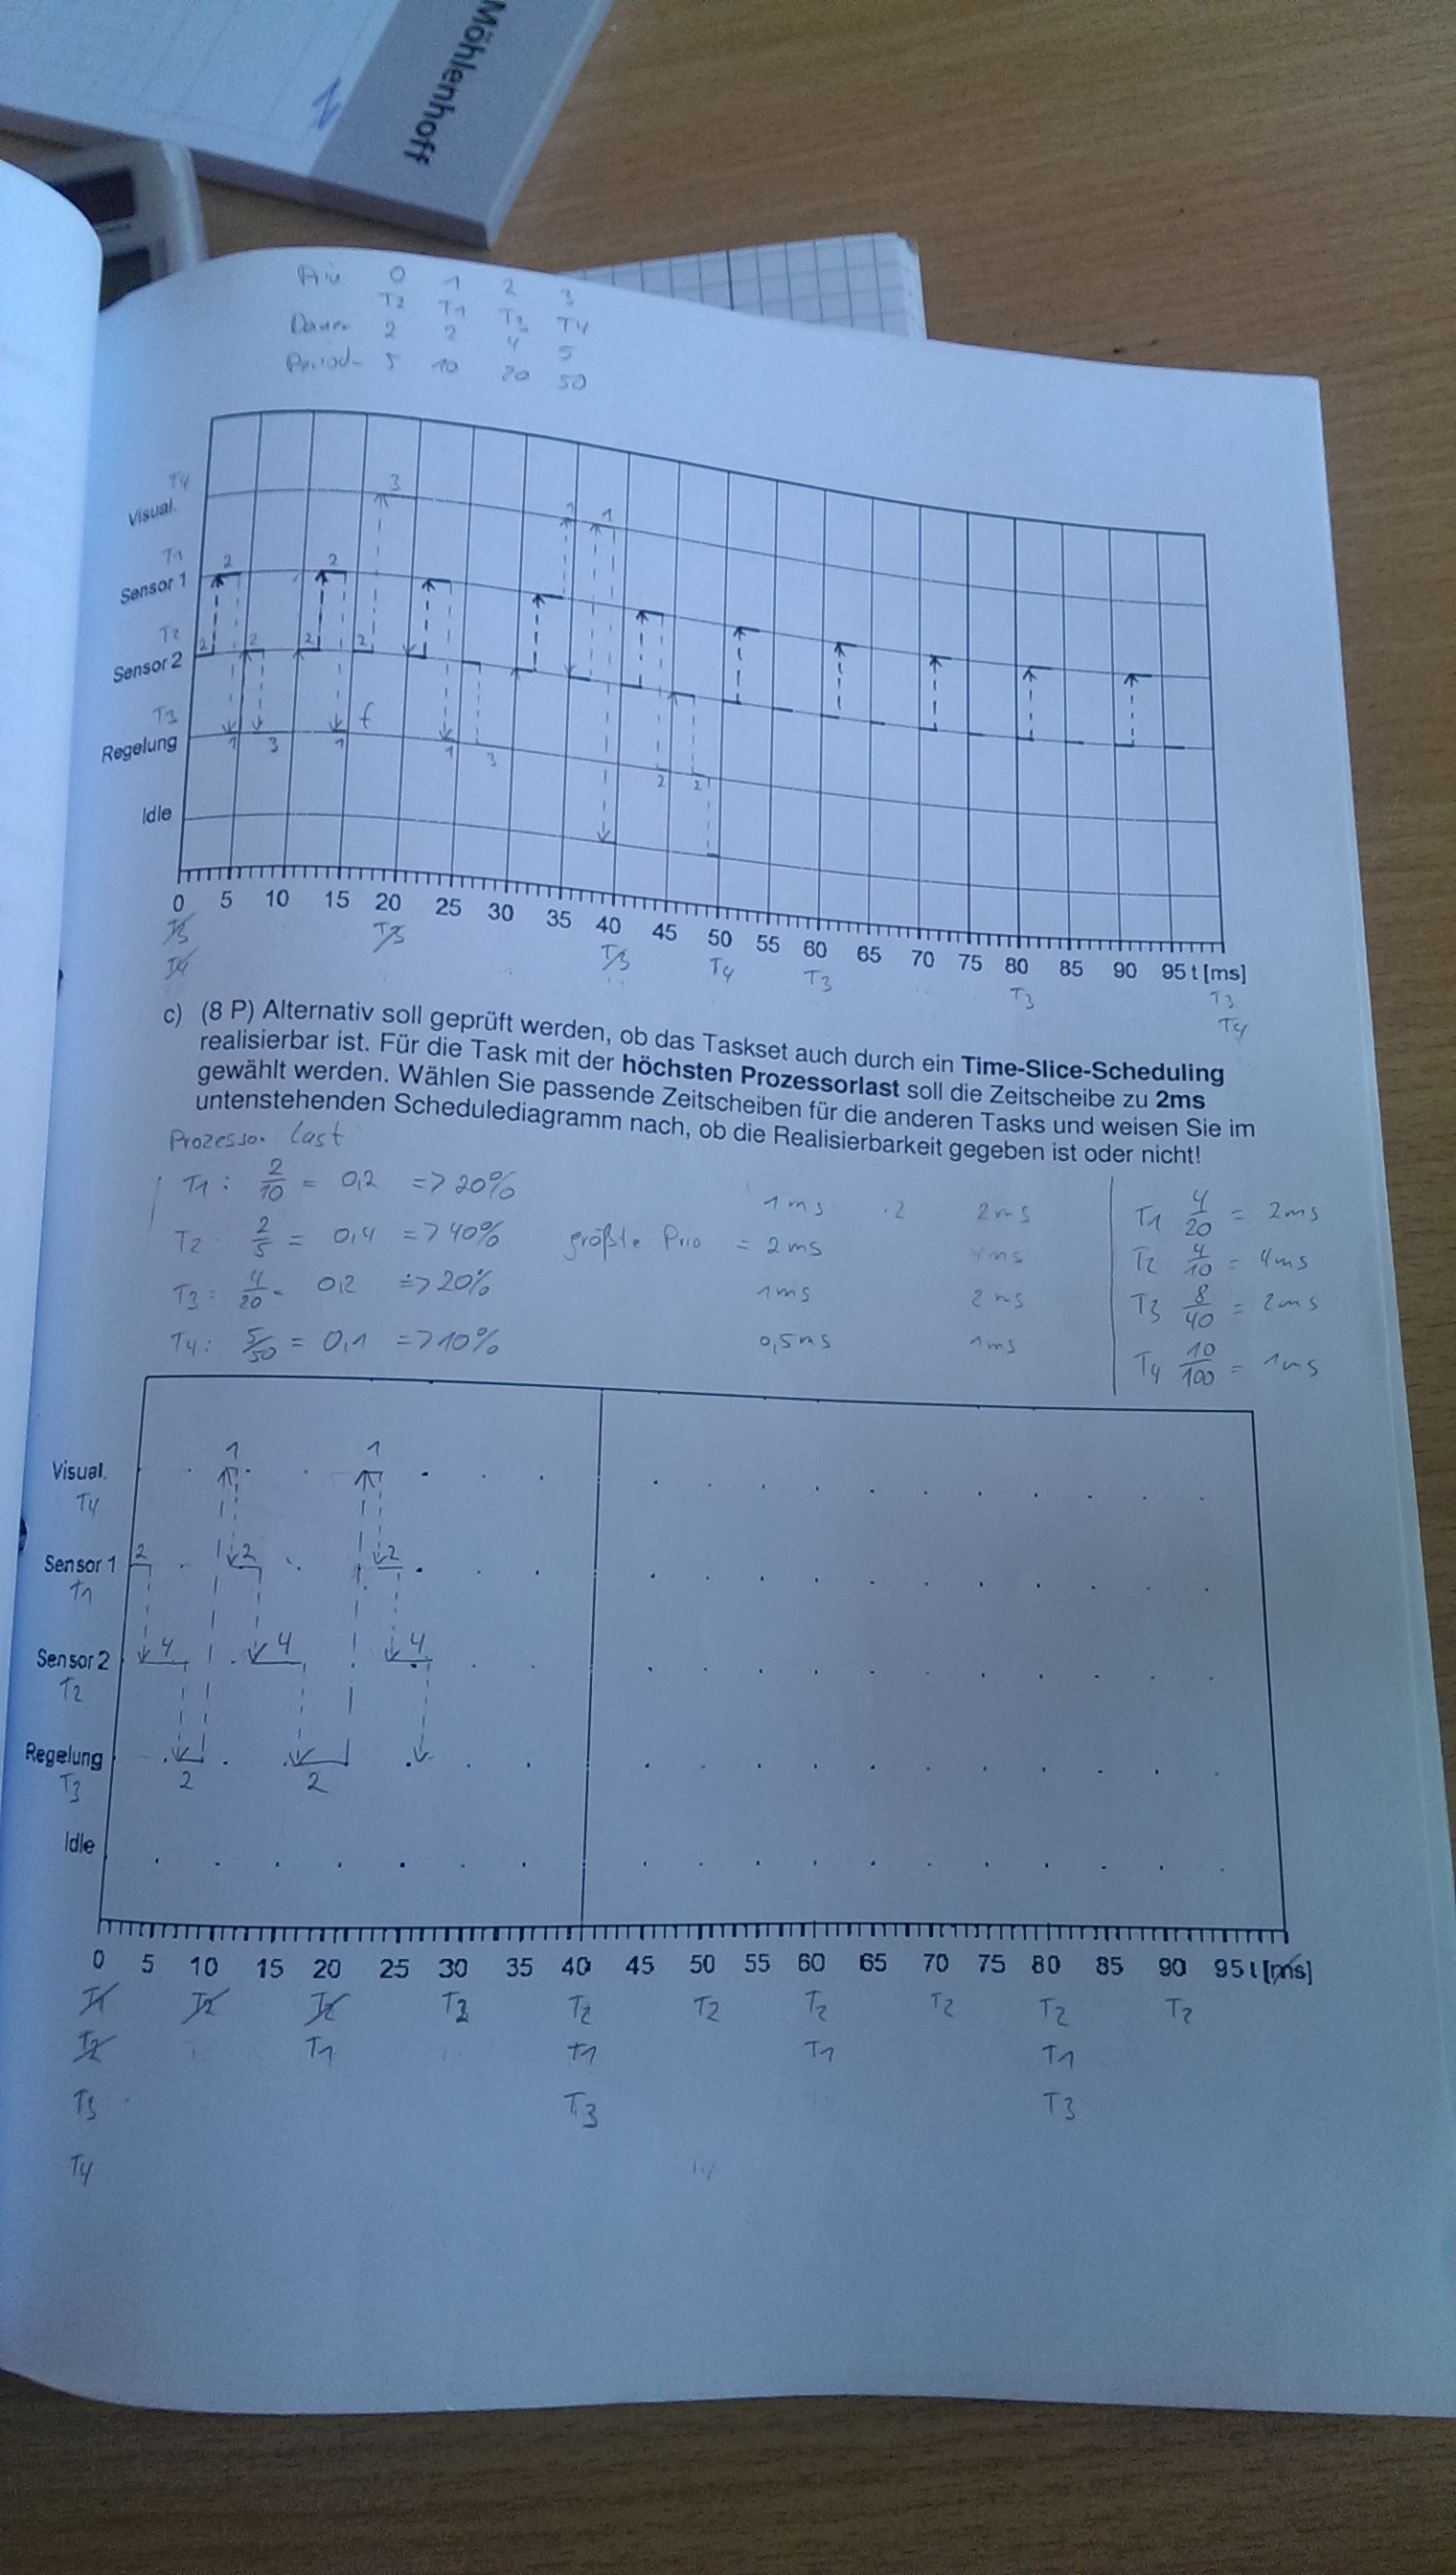 Möhlenhoff
Prio 0 1 2 3
T2 T1 T3 T4
Dauer 2 2 4 5
Period- 5 10 20 50
T4
Visual. 3 1 1
T1
Sensor 1 2 2
T2
Sensor 2 2 2 2 2
T3
Regelung 1 3 1 f 1 3 2 2
Idle
0 5 10 15 20 25 30 35 40 45 50 55 60 65 70 75 80 85 90 95 t [ms]
T3 T3 T3 T4 T3 T3 T3
T4 T4
c) (8 P) Alternativ soll geprüft werden, ob das Taskset auch durch ein Time-Slice-Scheduling
realisierbar ist. Für die Task mit der höchsten Prozessorlast soll die Zeitscheibe zu 2ms
gewählt werden. Wählen Sie passende Zeitscheiben für die anderen Tasks und weisen Sie im
untenstehenden Schedulediagramm nach, ob die Realisierbarkeit gegeben ist oder nicht!
Prozessor last
T1 : 2/10 = 0,2 => 20% 1ms ·2 2ms T1 4/20 = 2ms
T2 2/5 = 0,4 => 40% größte Prio = 2ms 4ms T2 4/10 = 4ms
T3 : 4/20 = 0,2 => 20% 1ms 2ms T3 8/40 = 2ms
T4 : 5/50 = 0,1 => 10% 0,5ms 1ms T4 10/100 = 1ms
Visual. 1 1
T4
Sensor 1 2 2 2
T1
Sensor 2 4 4 4
T2
Regelung
T3 2 2
Idle
0 5 10 15 20 25 30 35 40 45 50 55 60 65 70 75 80 85 90 95 t [ms]
T1 T2 T2 T2 T2 T2 T2 T2 T2 T2
T2 T1 T1 T1 T1
T3 T3 T3
T4